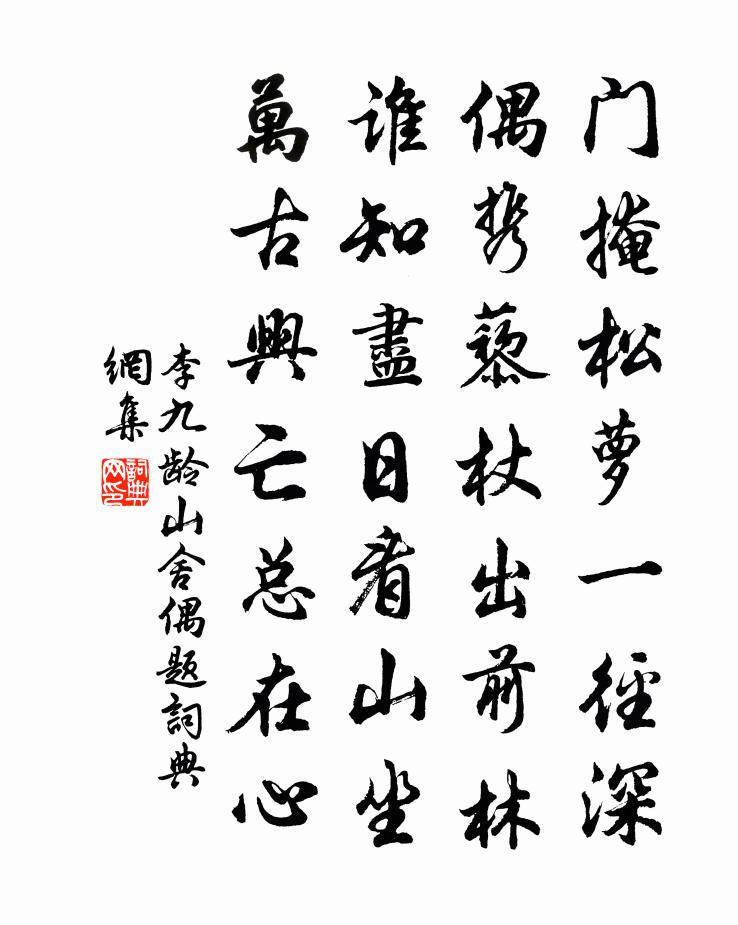 门掩松萝一径深
偶携藜杖出前林
谁知盡日看山坐
萬古興亡总在心
李九龄山舍偶题詞典
網集
詞典
网印